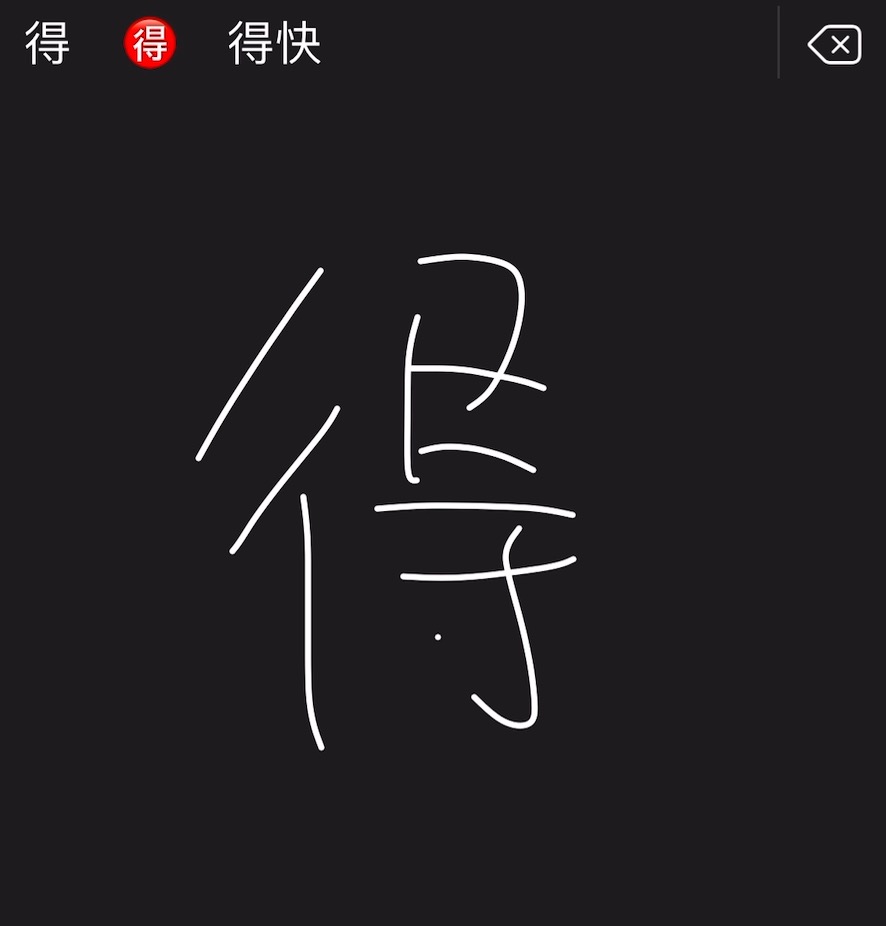 得 🉐 得快
得